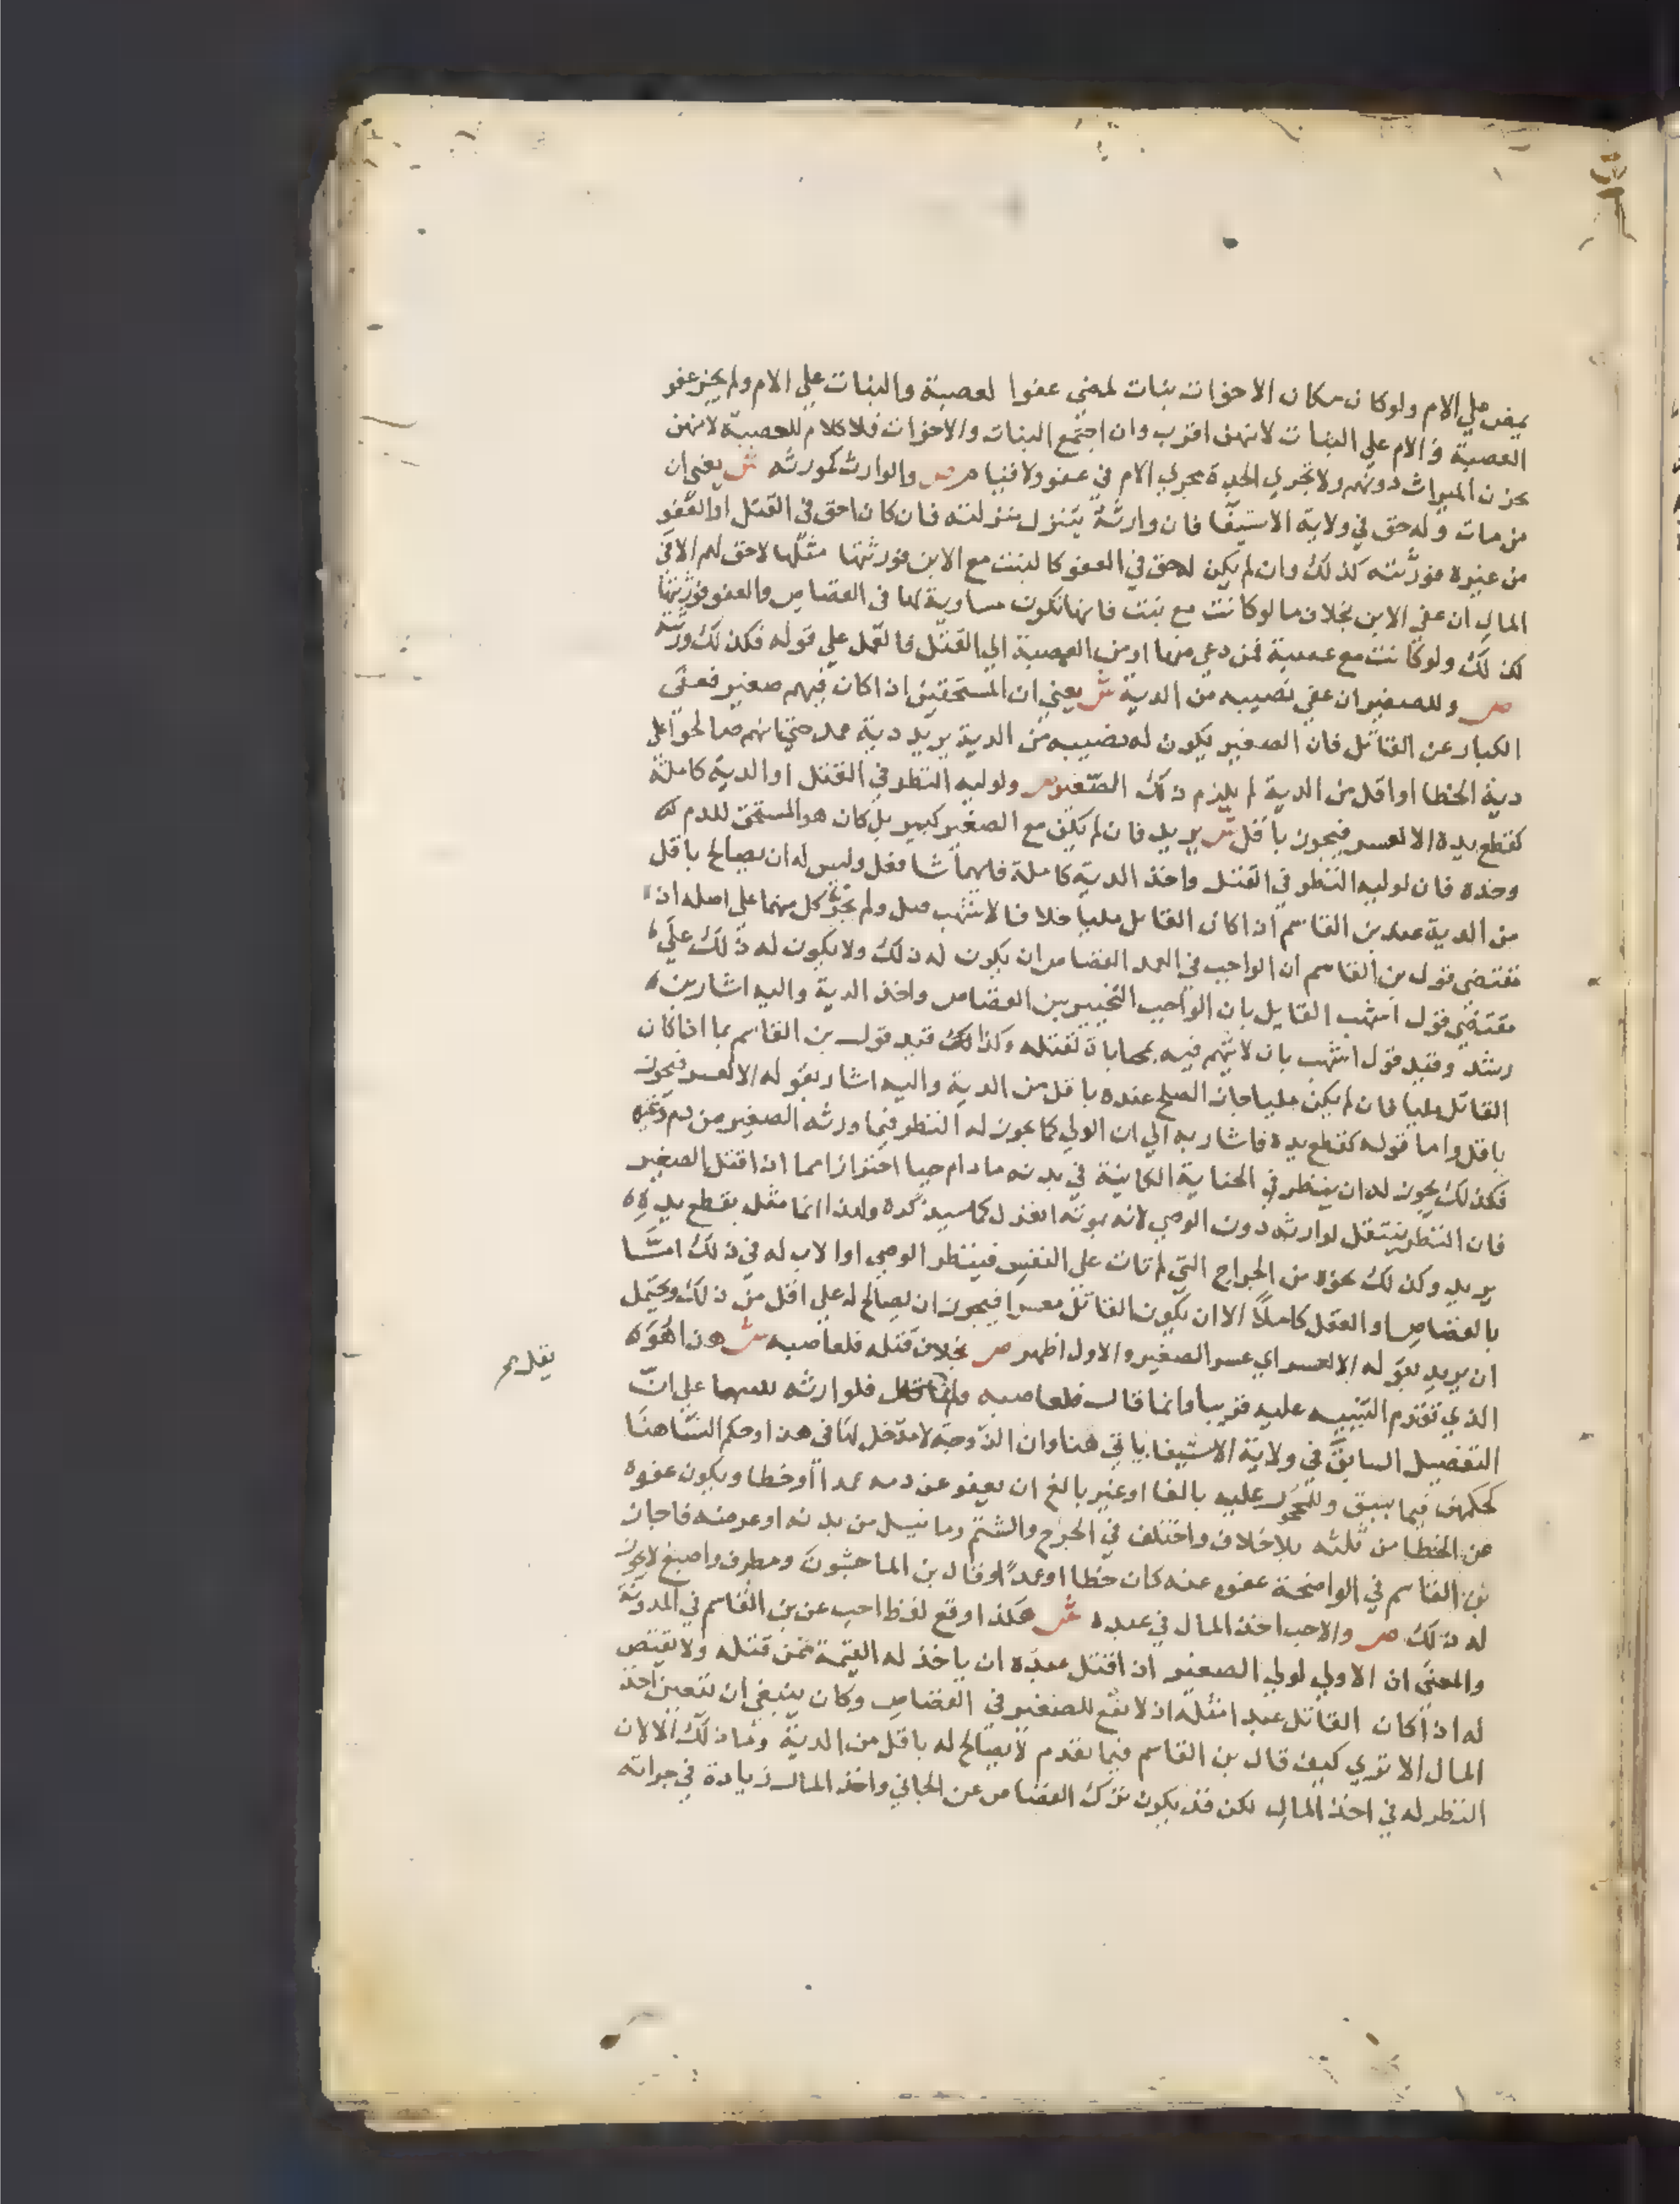 يمض علي الام ولو كان مكان الاخوات بنات لمضي عفوا لعصبة والبنات علي الام ولم يجز عفو
العصبة و الام علي البنات لانهن اقرب وان اجتمع البنات والاخوات فلا كلام للعصبة لانهن
يحزن الميراث دونهم ولا تجري الجدة مجري الام في عفو ولا قيام ص والوارث كمورثه ش يعني ان
من مات وله حق في ولاية الاستيفا فان وارثه يتنزل منزلته فان كان احق في القتل او العفو
من غيره فورثته كذلك وان لم يكن له حق في العفو كالبنت مع الابن فورثتها مثلها لا حق لهم الا في
المال ان عفي الابن بخلاف ما لو كانت مع بنت فانها تكون مساوية لها في القصاص والعفو فورثتها
كذلك ولو كانت مع عصبة فمن دعي منها او من العصبة الي القتل فالقول علي قوله فكذلك ورثته
ص وللصغير ان عفي نصيبه من الدية ش يعني ان المستحقين اذا كان فيهم صغير فعفي
الكبار عن القاتل فان الصغير يكون له نصيبه من الدية يريد دية عمد حتي انهم صالحوا علي
دية الخطا او اقل من الدية لم يلزم ذلك الصغير ص ولوليه النظر في القتل او الدية كاملة
كقطع يده الا لعسر فيجوز باقل ش يريد فان لم يكن مع الصغير كبير بل كان هو المستحق للدم
وحده فان لوليه النظر في القتل واخذ الدية كاملة فايهما شا فعل وليس له ان يصالح باقل
من الدية عند بن القاسم اذا كان القاتل مليا خلافا لاشهب ولم يجز كل منهما علي اصله اذ
مقتضي قول بن القاسم ان الواجب في العمد القصاص ان يكون له ذلك ولا يكون له ذلك علي
مقتضي قول اشهب القايل بان الواجب التخيير بين القصاص واخذ الدية واليه اشار بن
رشد وقيد قول اشهب بان لا يتهم فيه بمحاباة لقتله وكذلك قيد قول بن القاسم بما اذا كان
القاتل مليا فان لم يكن مليا جاز الصلح عنده باقل من الدية واليه اشار بقوله الا لعسر فيجوز
باقل واما قوله كقطع يده فاشار به الي ان الولي كما يجوز له النظر فيما ورثه الصغير من دم وغيره
فكذلك يجوز له ان ينظر في الجناية الكاينة في بدنه ما دام حيا احترازا مما اذا قتل الصغير
فان النظر ينتقل لوارثه دون الوصي لانه بموته انعزل كما سيذكره ولهذا انما مثل بقطع يده
يريد وكذلك نحوه من الجراح التي لم تات علي النفس فينظر الوصي او الاب له في ذلك امّا
بالقصاص او العقل كاملا الا ان يكون القاتل معسرا فيجوز ان يصالح له علي اقل من ذلك ويحتمل
ان يريد بقوله الا لعسر اي عسر الصغير والاول اظهر ص بخلاف قتله فلعاصبه ش هذا هو
الذي تقدم التنبيه عليه قريبا وانما قال فلعاصبه فلوارثه علي ان
التفصيل السابق في ولاية الاستيفا ياتي هنا وان الزوجة لا مدخل لها في هذا وحكم النسا هنا
كحكمهن فيما سبق وللمحجور عليه بالغا او غير بالغ ان يعفو عن دمه عمدا او خطا ويكون عفوه
عن الخطا من ثلثه بلا خلاف واختلف في الجرح والشتم وما نيل من بدنه او عرضه فاجاز
بن القاسم في الواضحة عفوه عنه كان خطا او عمدا وقال بن الماجشون ومطرف واصبغ لا يجوز
له ذلك ص والاحب اخذ المال في عبده ش هكذا وقع لفظ احب عن بن القاسم في المدونة
والمعني ان الاولي لولي الصغير اذا قتل عبده ان ياخذ له القيمة ممن قتله ولا يقتص
له اذا كان القاتل عبدا مثله اذ لا نفع للصغير في القصاص وكان ينبغي ان يتعين اخذ
المال الا تري كيف قال بن القاسم فيما تقدم لا يصالح له باقل من الدية وما ذلك الا لان
النظر له في اخذ المال لكن قد يكون ترك القصاص عن الجاني واخذ المال زيادة في جراته